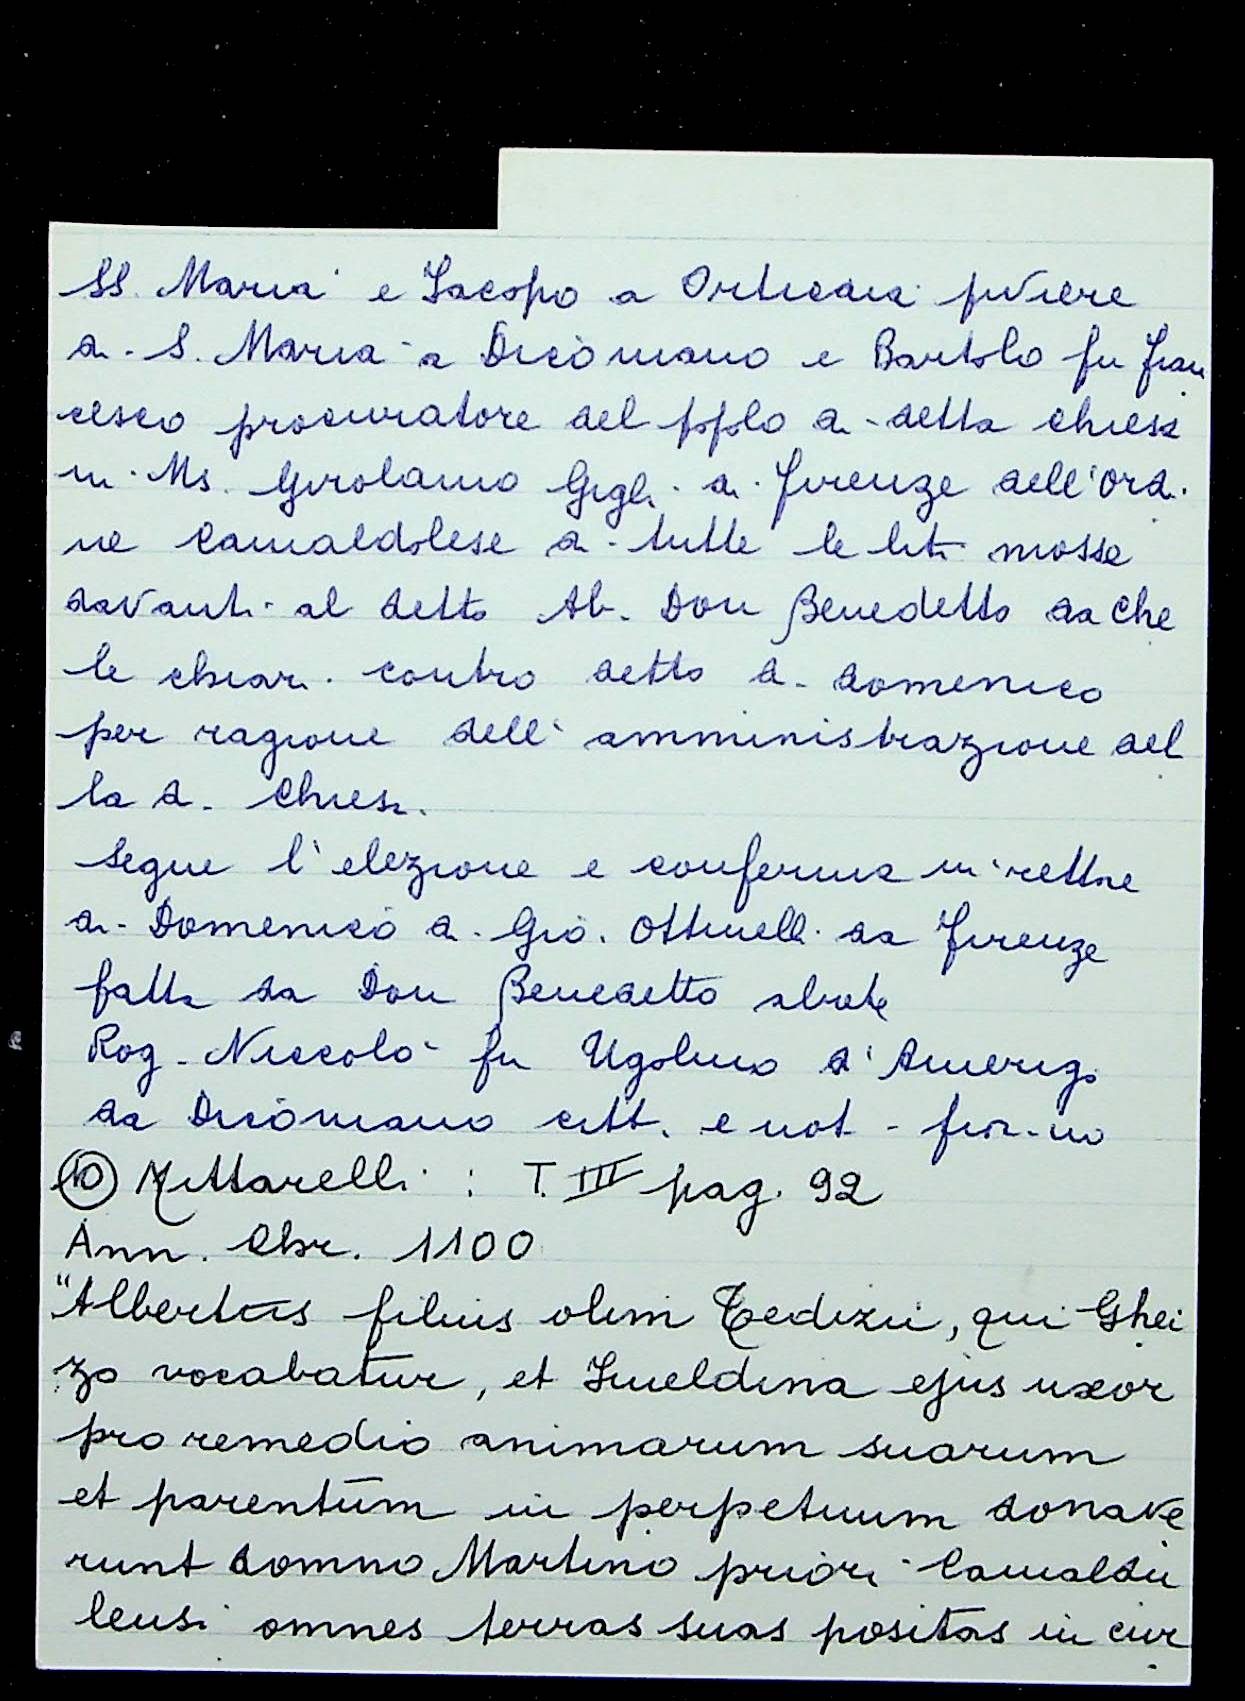 SS. Maria e Iacopo a Orticaia piviere
di S. Maria a Dicomano e Bartolo fu Fran
cesco procuratore del pplo di detta chiesa
in Ms. Girolamo Gigli di Firenze dell'ordi
ne Camaldolese di tutte le liti mosse
davanti al detto Ab. Don Benedetto da Che
le chiar. contro detto d. Domenico
per ragione dell'amministrazione del
la d. Chiesa.
Segue l'elezione e conferma in rettore
di Domenico di Gio. Ottinelli da Firenze
fatta da Don Benedetto abate
Rog. Niccolò fu Ugolino d'Amerigo
da Dicomano citt. e not. fior.no
(10) Mittarelli : T. III pag. 92
Ann. Chr. 1100
"Albertus filius olim Tedizii, qui Ghei
zo vocabatur, et Imeldina ejus uxor
pro remedio animarum suarum
et parentum in perpetuum donave
runt domno Martino priori Camaldu
lensi omnes terras suas positas in cur